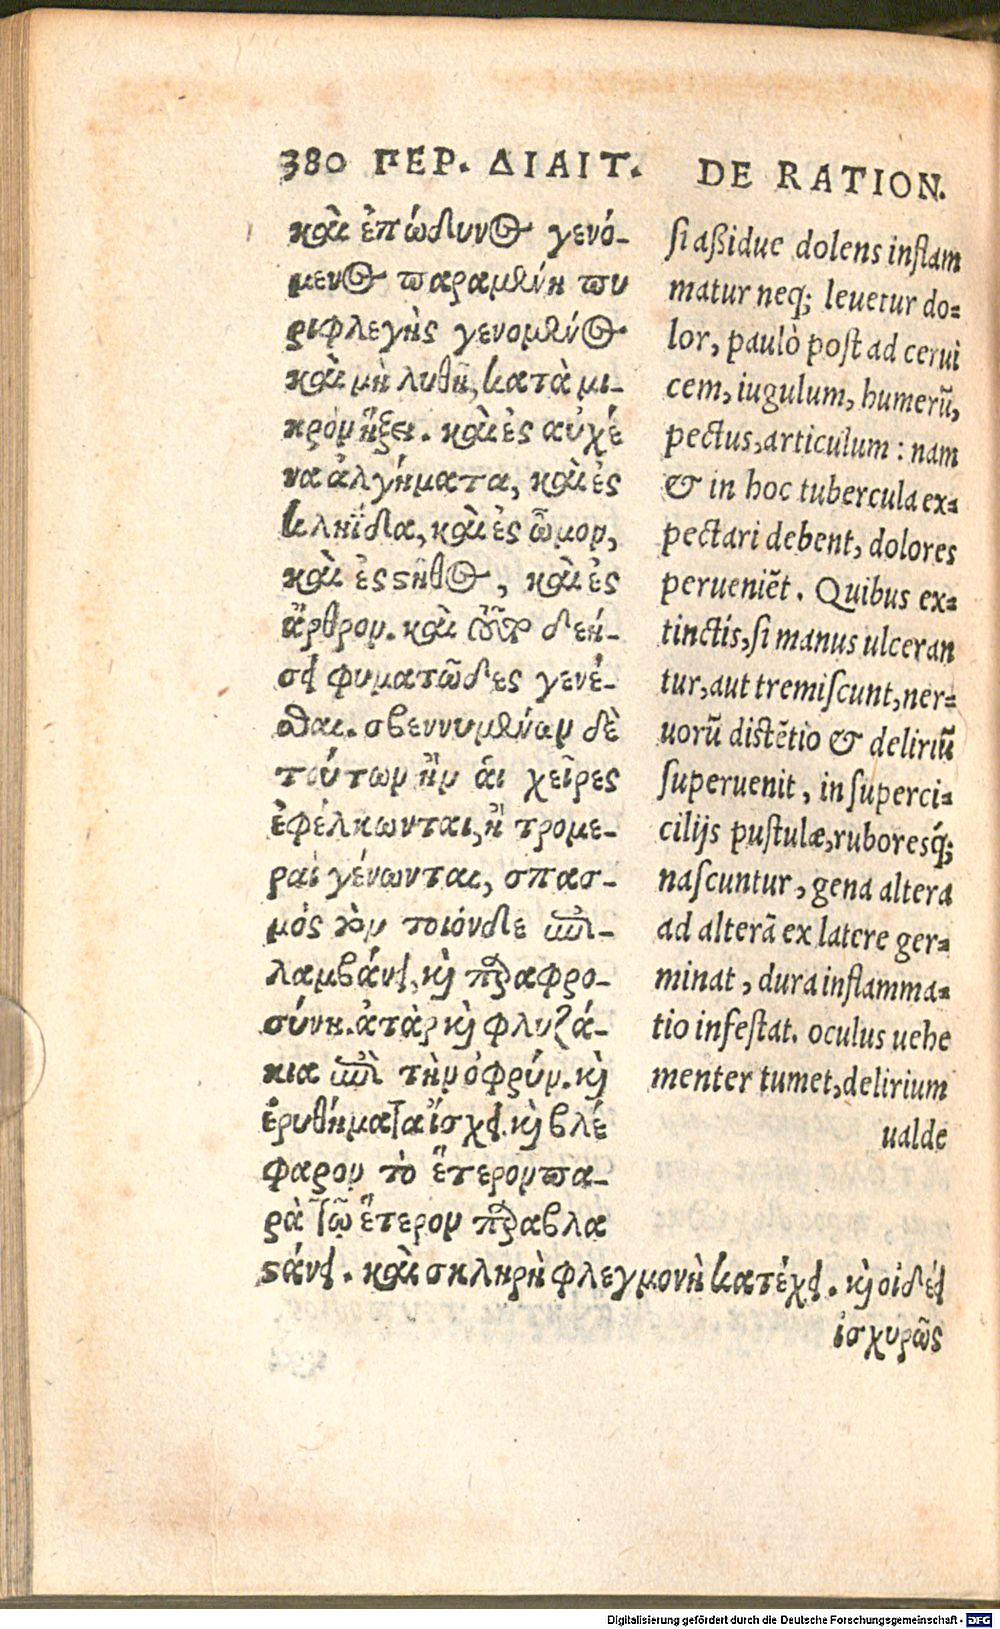 380 ΠΕΡ. ΔΙΑΙΤ.
καὶ ἐπώδυνος γενό-
μενος παραμένη πυ
ριφλεγὴς γενομένος
καὶ μὴ λυθῆ, κατὰ μι-
κρὸν ἥξει. καὶ ἐς αὐχέ
να ἀλγήματα, καὶ ἐς
κληΐδα, καὶ ἐς ὦμον,
καὶ ἐς στῆθος, καὶ ἐς
ἄρθρον. καὶ οὖν δεή-
σει φυματῶδες γενέ-
σθαι. σβεννυμένων δὲ
τούτων ἢν ἁι χεῖρες
ἐφέλκωνται, ἢ τρομε-
ραὶ γένωνται, σπασ-
μὸς τὸν τοιόνδε ἐπι-
λαμβάνει, καὶ παραφρο-
σύνη. ἀτὰρ καὶ φλυζά-
κια ἐπὶ τὴν ὀφρύν. καὶ
ἐρυθήματα ἴσχει. καὶ βλέ
φαρον τὸ ἕτερον πα-
ρὰ τῷ ἕτερον παραβλα
στάνει. καὶ σκληρὴ φλεγμονὴ κατέχει. καὶ οἰδέει
ἰσχυρῶς
DE RATION.
si aßidue dolens inflam
matur neq; leuetur do-
lor, paulò post ad cerui
cem, iugulum, humerũ,
pectus, articulum: nam
& in hoc tubercula ex-
pectari debent, dolores
perueniẽt. Quibus ex-
tinctis, si manus ulceran
tur, aut tremiscunt, ner-
uorũ distẽtio & deliriũ
superuenit, in superci-
cilijs pustulæ, ruboresq́;
nascuntur, gena altera
ad alterã ex latere ger-
minat, dura inflamma-
tio infestat. oculus uehe
menter tumet, delirium
ualde
Digitalisierung gefördert durch die Deutsche Forschungsgemeinschaft - DFG